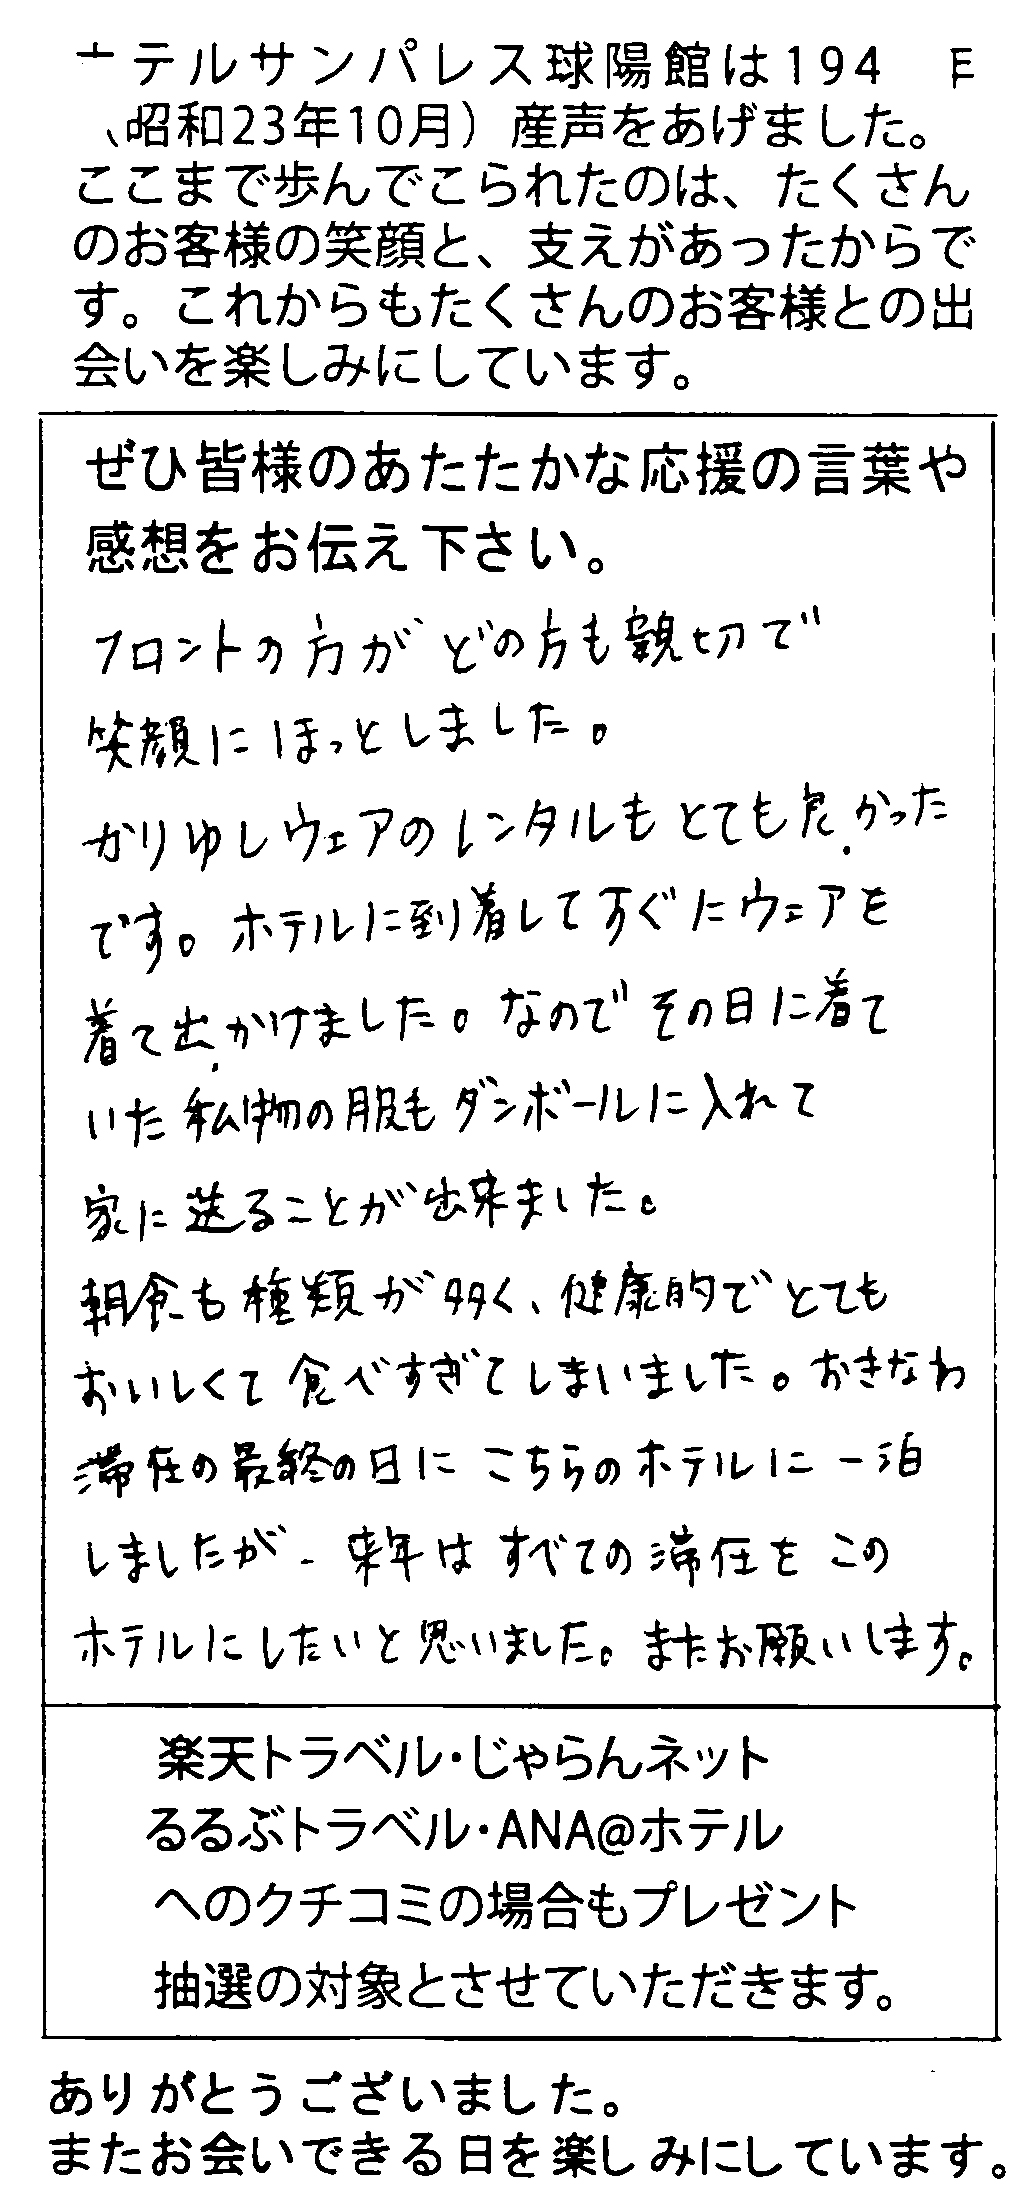 テルサンパレス球陽館は194
昭和23年10月）産声をあげました。
ここまで歩んでこられたのは、たくさん
のお客様の笑顔と、支えがあったからで
す。これからもたくさんのお客様との出
会いを楽しみにしています。
ぜひ皆様のあたたかな応援の言葉や
感想をお伝え下さい。
フロントの方がどの方も親切で
笑顔にほっとしました。
かりゆしウェアのレンタルもとても良かった
です。ホテルに到着してすぐにウェアを
着て出かけました。なのでその日に着て
いた私物の服もダンボールに入れて
家に送ることが出来ました。
朝食も種類が多く、健康的でとても
おいしくて食べすぎてしまいました。おきなわ
滞在の最終の日にこちらのホテルに一泊
しましたが、来年はすべての滞在をこの
ホテルにしたいと思いました。またお願いします。
楽天トラベル・じゃらんネット
るるぶトラベル・ANA@ホテル
へのクチコミの場合もプレゼント
抽選の対象とさせていただきます。
ありがとうございました。
またお会いできる日を楽しみにしています。